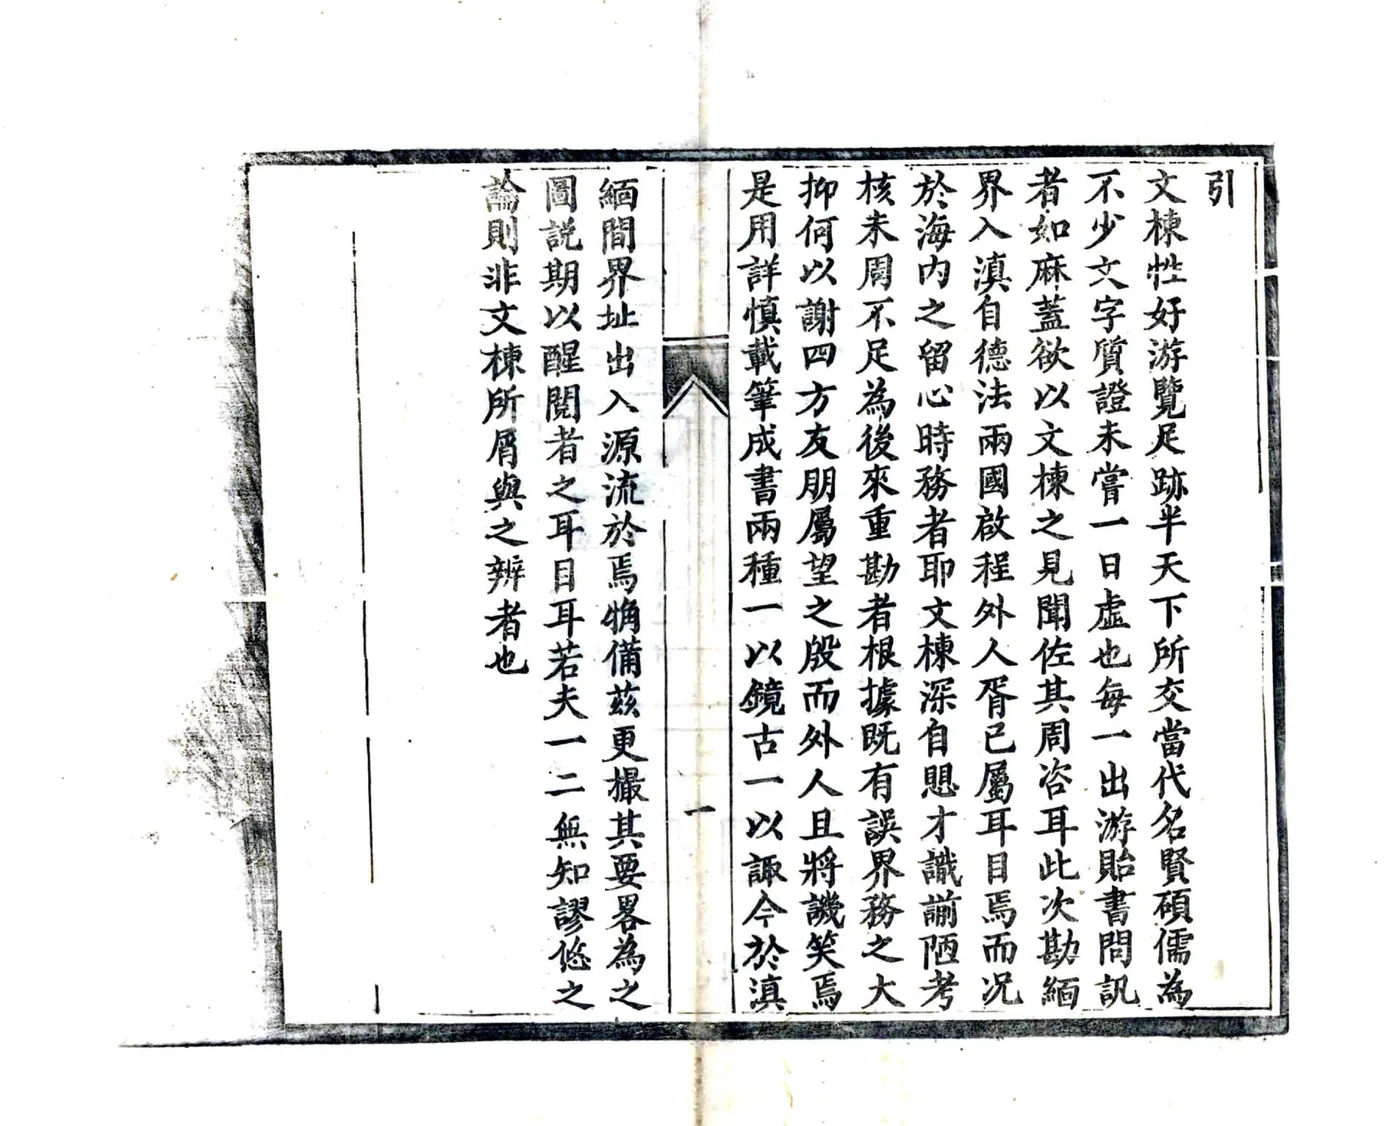 引
文棟性好游覽足跡半天下所交當代名賢碩儒為
不少文字質證未嘗一日虛也每一出游貽書問訊
者如麻蓋欲以文棟之見聞佐其周咨耳此次勘緬
界入滇自德法兩國啟程外人胥已屬耳目焉而況
於海内之留心時務者耶文棟深自思才識謭陋考
核未周不足為後來重勘者根據既有誤界務之大
抑何以謝四方友朋屬望之殷而外人且將譏笑焉
是用詳慎載筆成書兩種一以鏡古一以諏今於滇
一
緬間界址出入源流於焉觕備茲更撮其要畧為之
圖説期以醒閱者之耳目耳若夫一二無知謬悠之
論則非文棟所屑與之辨者也